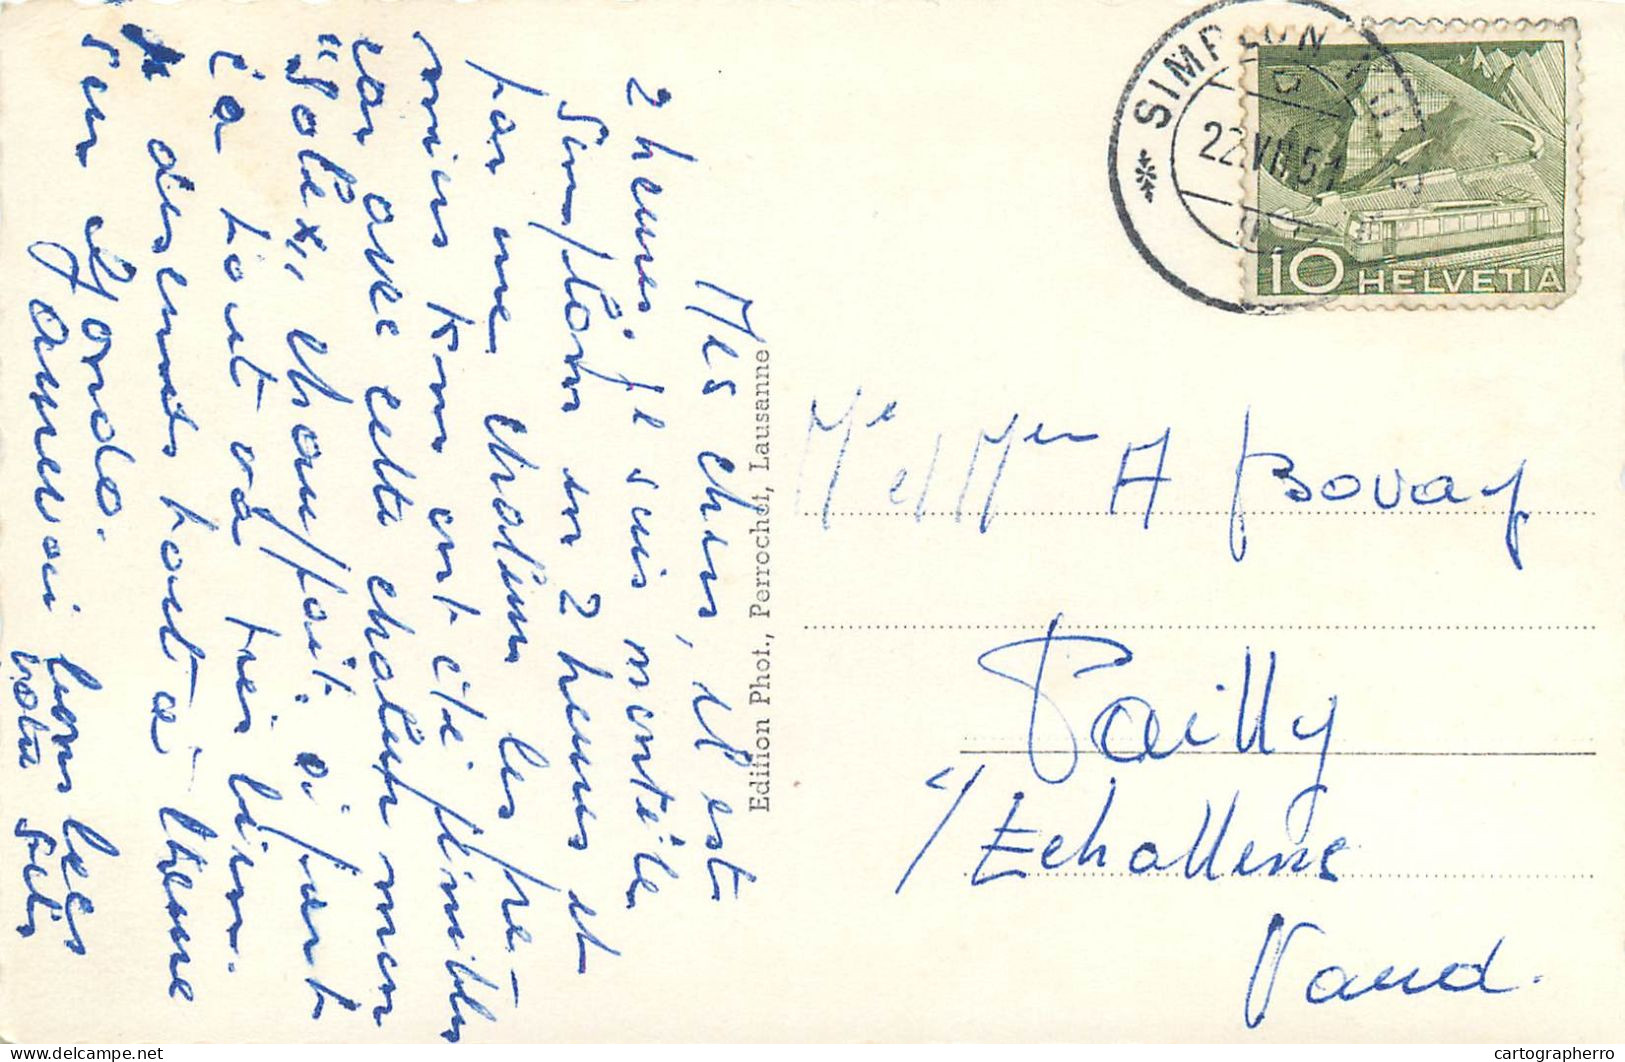 Mes chers, il est
2 heures, je suis monté le
Simplon en 2 heures et
par une chaleur les pre-
miers km ont été pénibles
car avec cette chaleur mon
"Solex" chauffait.
ça tout va très bien.
descends tout à l'heure
sur Gondo.
bons bees
votre
Edition Phot., Perrochet, Lausanne
SIMPLON
22.VII.51
10 HELVETIA
Mr et Mme A Bovay
Pailly
s/ Echallens
Vaud.
cartographerro
delcampe.net